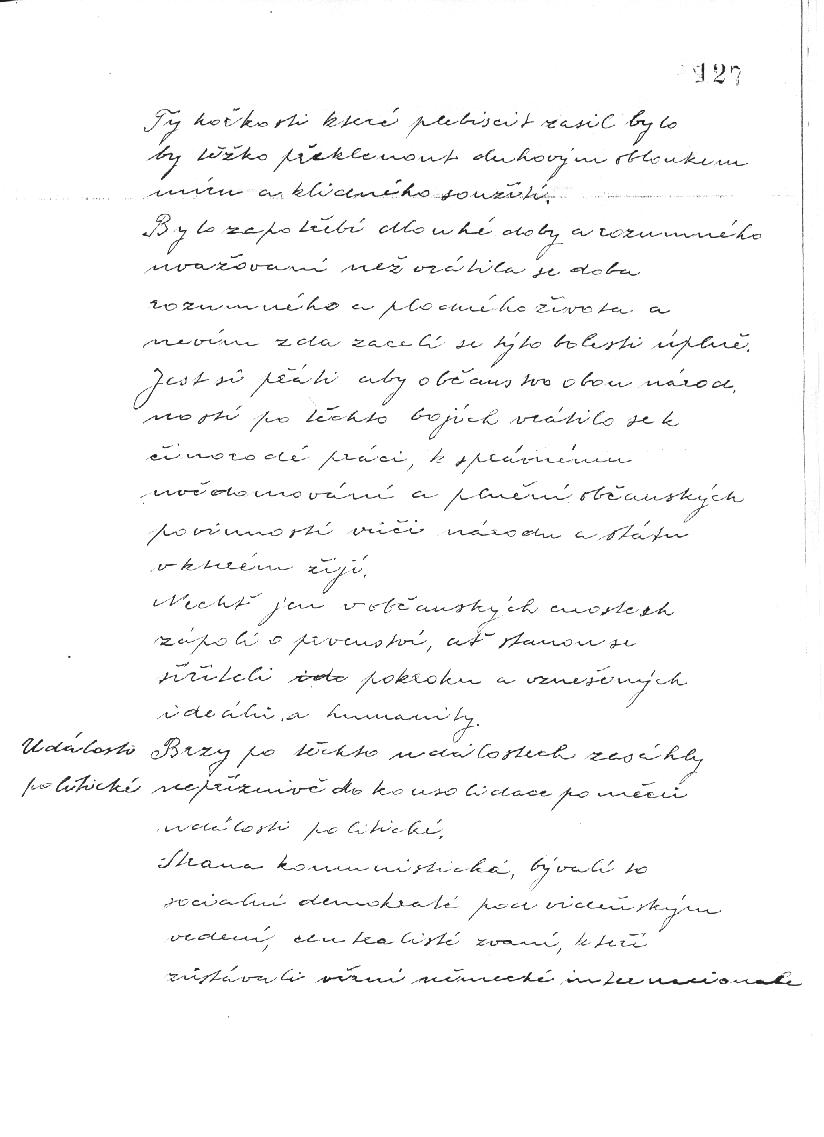 127
Ty hořkosti které plebiscit zasil bylo
by těžko překlenout duhovým obloukem
míru a klidného soužití.
Bylo zapotřebí dlouhé doby a rozumného
uvažování než vrátila se doba
rozumného a plodného života a
nevím zda zacelí se tyto bolesti úplně.
Jest si přáti aby občanstvo obou národ,
ností po těchto bojích vrátilo se k
činorodé práci, k správnému
uvědomování a plnění občanských
povinností vůči národu a státu
v kterém žijí.
Nechť jen v občanských cnostech
zápolí o prvenství, ať stanou se
šiřiteli pokroku a vznešených
ideálů a humanity.
Události Brzy po těchto událostech zasáhly
politické nepříznivě do konsolidace poměrů
události politické.
Strana komunistická, bývalí to
socialní demokraté pod vídeňským
vedení, centralisté zvaní, kteří
zůstávali věrni německé internacionale